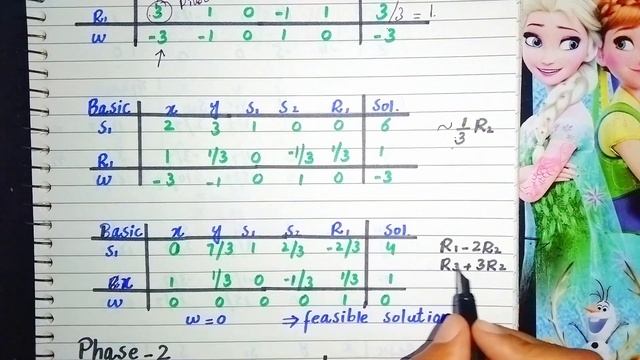 R₁ 3 1 0 -1 1 3/3 = 1.
w -3 -1 0 1 0 -3
Basic x y S₁ S₂ R₁ Sol.
S₁ 2 3 1 0 0 6
R₁ 1 1/3 0 -1/3 1/3 1
w -3 -1 0 1 0 -3
~ 1/3 R₂
Basic x y S₁ S₂ R₁ Sol.
S₁ 0 7/3 1 2/3 -2/3 4
x 1 1/3 0 -1/3 1/3 1
w 0 0 0 0 1 0
R₁ - 2R₂
R₃ + 3R₂
w = 0 ⇒ feasible solution
Phase - 2